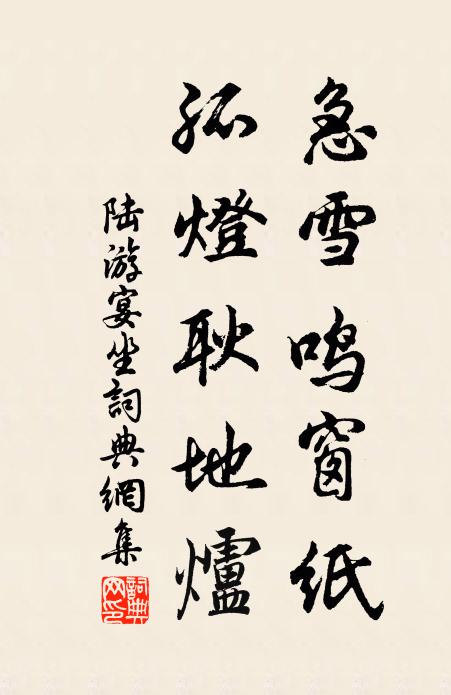 急雪鳴窗紙
孤燈耿地爐
陆游宴坐詞典網集
詞典网印